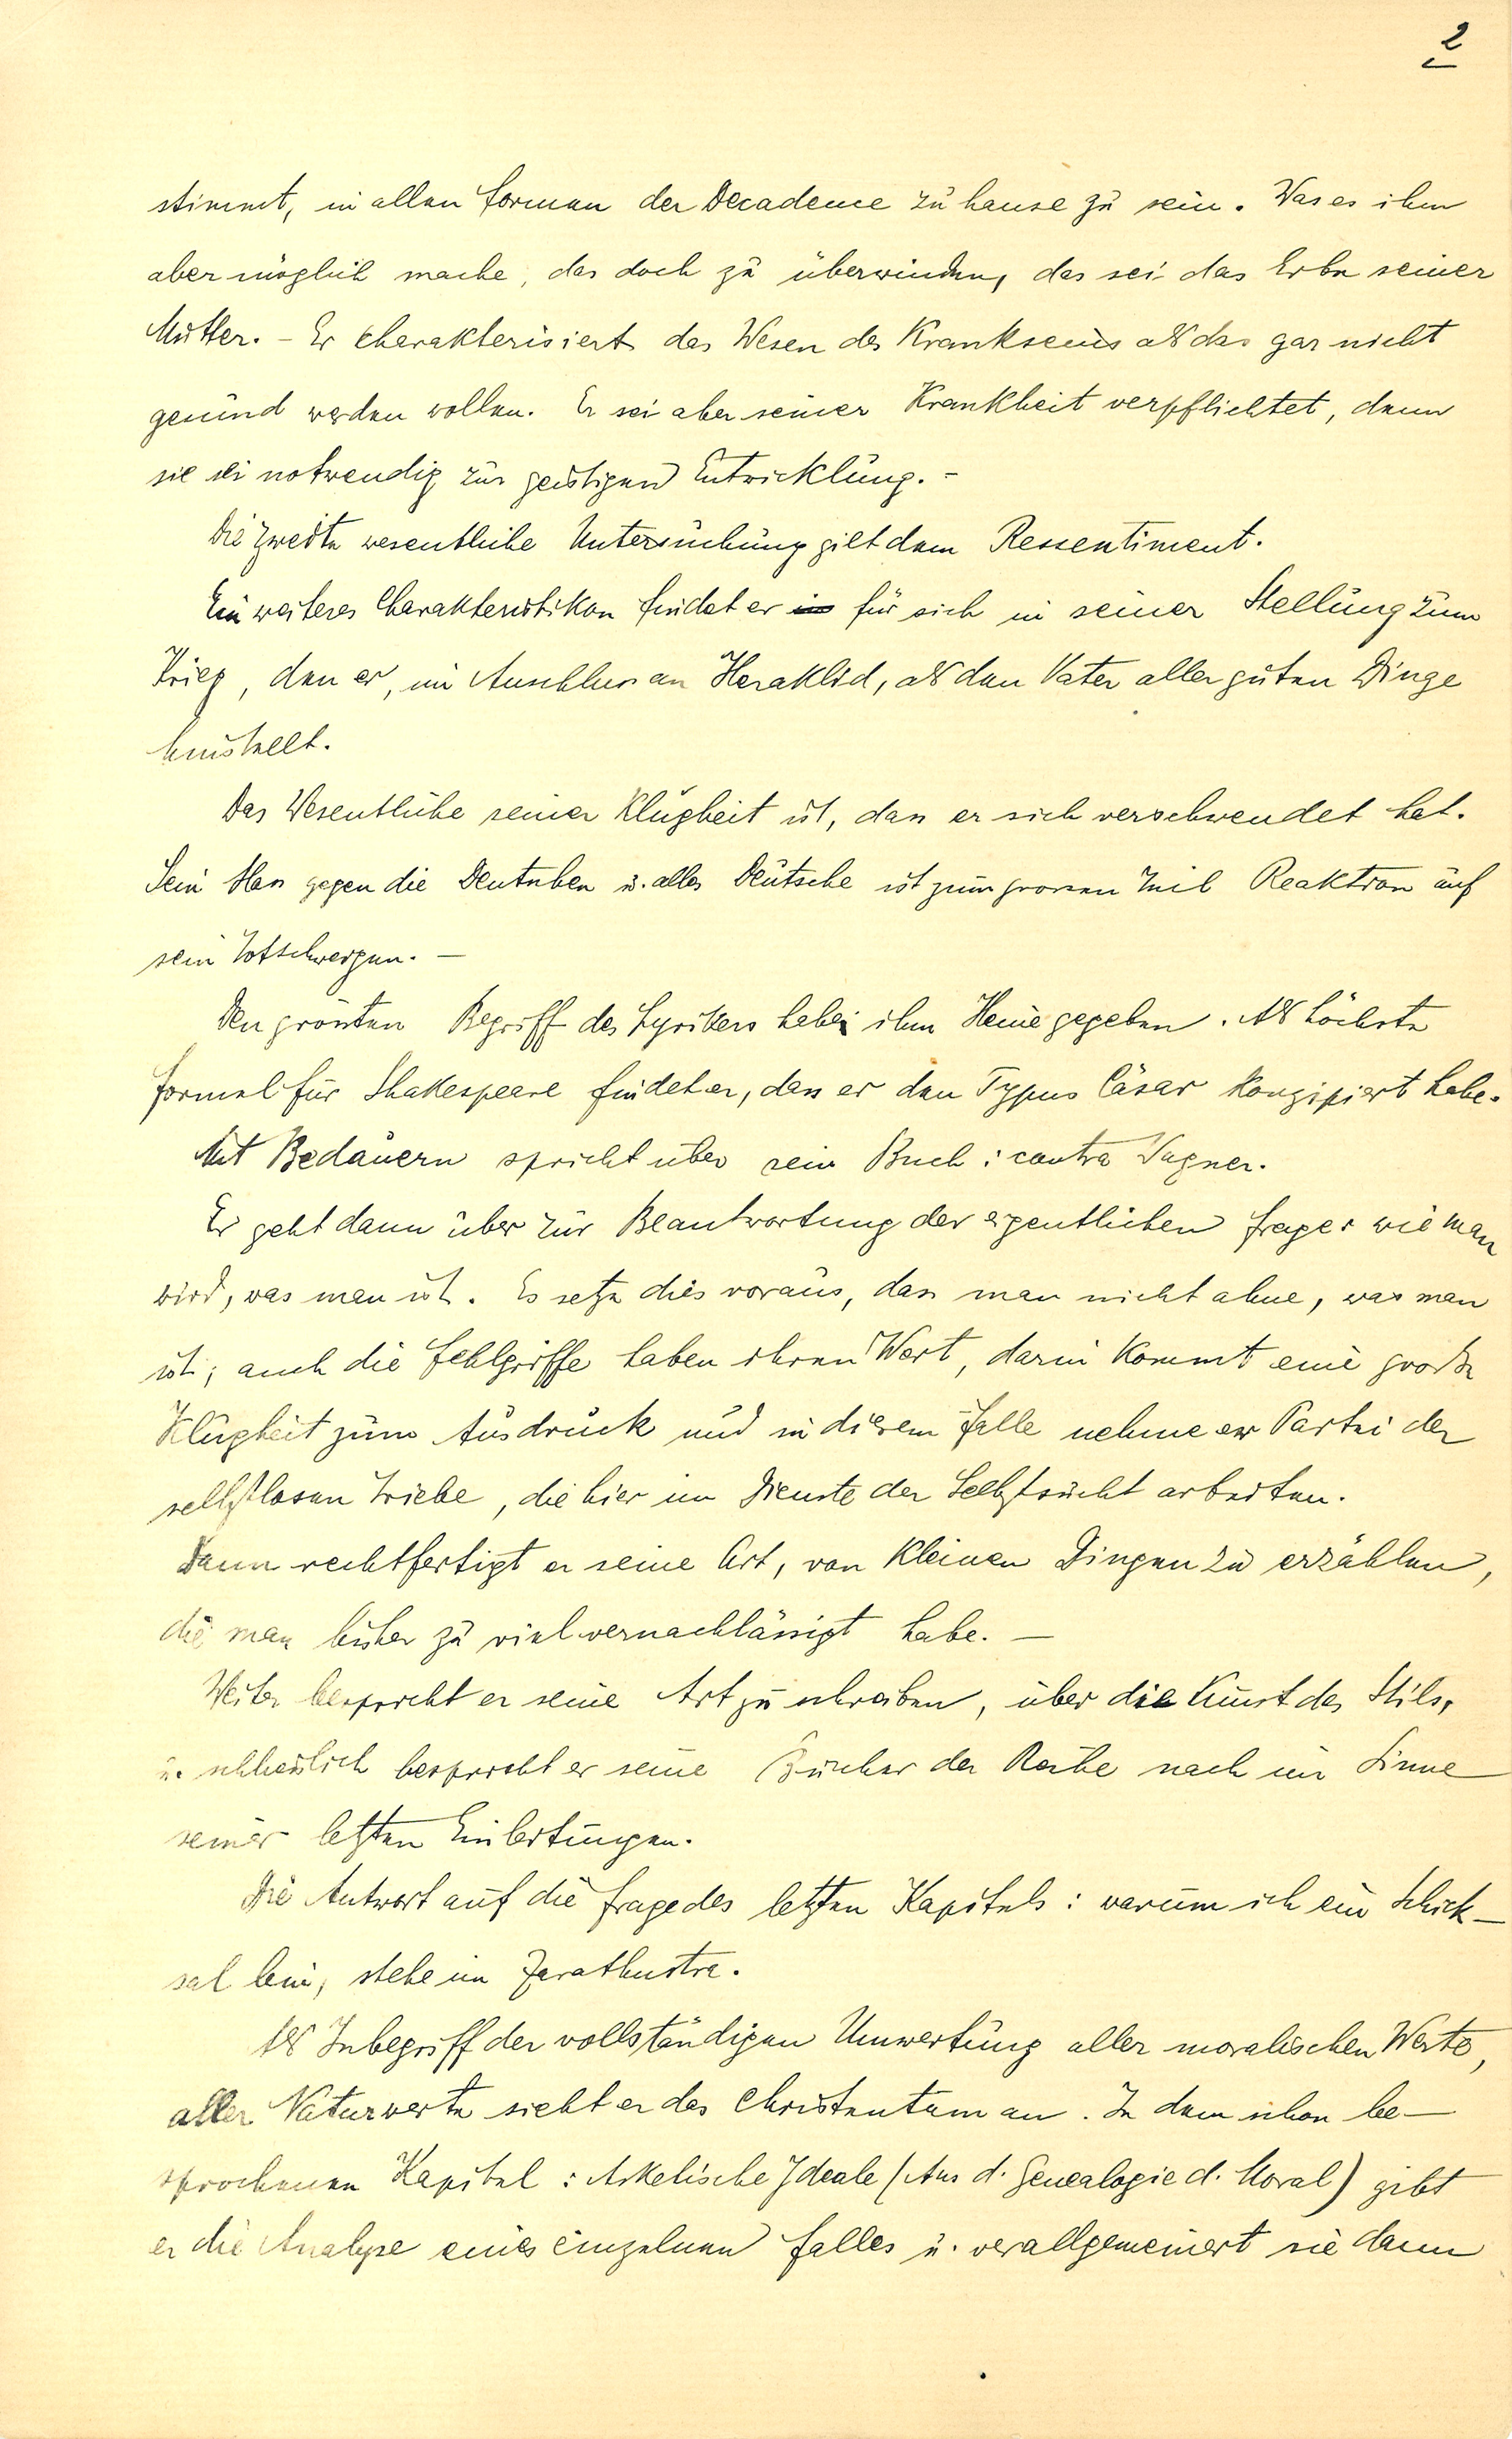 2
stimmt, in allen Formen der Decadence zu hause zu sein. Was es ihm
aber möglich mache, das doch zu überwinden, das sei das Erbe seiner
Mutter. – Er charakterisiert das Wesen des Krankseins als das gar nicht
gesund werden wollen. Er sei aber seiner Krankheit verpflichtet, denn
sie sei notwendig zur geistigen Entwicklung. –
Die zweite wesentliche Untersuchung gilt dem Ressentiment.
Ein weiteres Charakteristikon findet er in für sich in seiner Stellung zum
Krieg, den er, im Anschluss an Heraklid, als den Vater aller guten Dinge
hinstellt.
Das Wesentliche seiner Klugheit ist, dass er sich verschwendet hat.
Sein Hass gegen die Deutschen u. alles Deutsche ist zum grossen Teil Reaktion auf
sein Totschweigen. –
Den grössten Begriff des Lyrikers habe ihm Heine gegeben. Als höchste
Formel für Shakespeare findet er, dass er den Typus Cäsar konzipiert habe.
Mit Bedauern spricht über sein Buch: contra Wagner.
Er geht dann über zur Beantwortung der eigentlichen Frage: wie man
wird, was man ist. Es setze dies voraus, dass man nicht ahne, was man
ist; auch die Fehlgriffe haben ihren Wert, darin kommt eine große
Klugheit zum Ausdruck und in diesem Falle nehme er Partei der
selbstlosen Triebe, die hier im Dienste der Selbstsucht arbeiten.
Dann rechtfertigt er seine Art, von kleinen Dingen zu erzählen,
die man bisher zu viel vernachlässigt habe. –
Weiter bespricht er seine Art zu schreiben, über die Kunst des Stils,
u. schliesslich bespricht er seine Bücher der Reihe nach im Sinne
seiner letzten Einleitungen.
Die Antwort auf die Frage des letzten Kapitels: warum ich ein Schick-
sal bin, stehe im Zarathustra.
Als Inbegriff der vollständigen Umwertung aller moralischen Werte,
aller Naturwerte sieht er das Christentum an. In dem schon be-
sprochenen Kapitel: Asketische Ideale (Aus d. Genealogie d. Moral) gibt
er die Analyse eines einzelnen Falles u. verallgemeinert sie dann